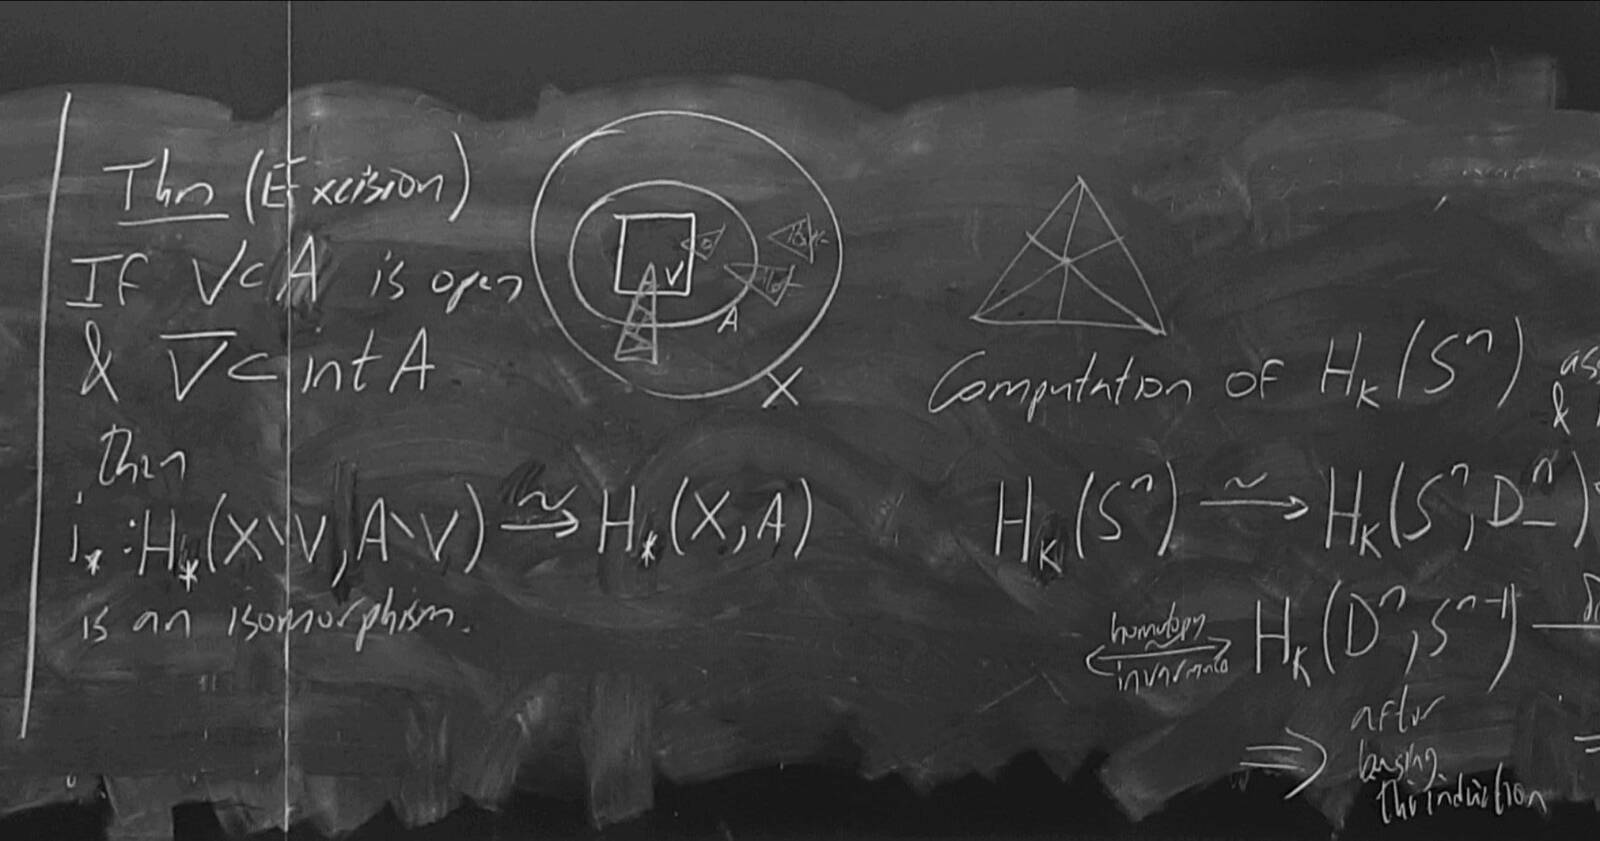 Thm (Excision)
If V⊂A is open
& V̅⊂ int A
then
i_* : H_*(X\V, A\V) →~ H_*(X,A)
is an isomorphism.
V
A
X
Computation of H_K(S^n)
&
H_K(S^n) →~ H_K(S^n, D^n_-)
homotopy
invariance
H_K(D^n, S^{n-1})
⇒ after
basing
the induction